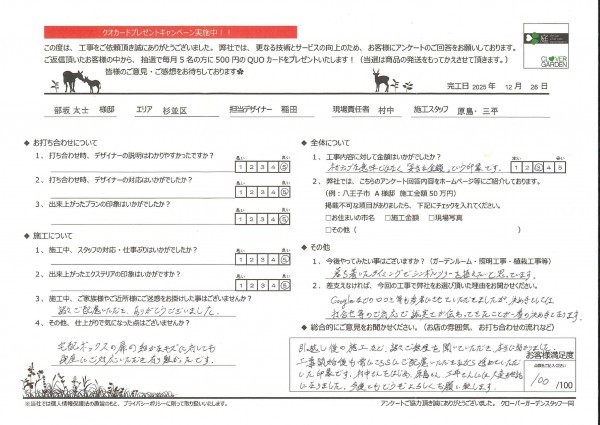 クオカードプレゼントキャンペーン実施中!!
この度は、工事をご依頼頂き誠にありがとうございました。弊社では、更なる技術とサービスの向上のため、お客様にアンケートのご回答をお願いしております。
ご返信頂いたお客様の中から、抽選で毎月5名の方に500円のQUOカードをプレゼントいたします!(当選は商品の発送をもってかえさせて頂きます。)
皆様のご意見・ご感想をお待ちしております✿
CLOVER GARDEN
完工日 2025年 12月 26日
部坂 太士 様邸 エリア 杉並区 担当デザイナー 稲田 現場責任者 村中 施工スタッフ 原島・三平
◆ お打ち合わせについて
1. 打ち合わせ時、デザイナーの説明はわかりやすかったですか?
悪い 良い
1 2 3 4 5
2. 打ち合わせ時、デザイナーの対応はいかがでしたか?
悪い 良い
1 2 3 4 5
3. 出来上がったプランの印象はいかがでしたか?
悪い 良い
1 2 3 4 5
◆ 施工について
1. 施工中、スタッフの対応・仕事ぶりはいかがでしたか?
悪い 良い
1 2 3 4 5
2. 出来上がったエクステリアの印象はいかがですか?
悪い 良い
1 2 3 4 5
3. 施工中、ご家族様やご近所様にご迷惑をお掛けした事はございませんか?
ご配慮いただき、ありがとうございました。
4. その他、仕上がりで気になった点はございますか?
宅配ボックスの扉の
◆ 全体について
1. 工事内容に対して金額はいかがでしたか?
高い 安い
1 2 3 4 5
という印象です。
2. 弊社では、こちらのアンケート回答内容をホームページ等にご紹介しております。
(例:八王子市 A様邸 施工金額50万円)
掲載不可な項目がありましたら、下記にチェックを入れてください。
□お住まいの市名 □施工金額 □現場写真
□その他( )
◆ その他
1. 今後やってみたい事はございますか?(ガーデンルーム・照明工事・植栽工事等)
落ち着いたタイミングでシンボルツリーを植えたいと思っています。
2. 差支えなければ、今回の工事で弊社をお選び頂いた理由をお聞かせください。
Googleなどの口コミ等も参考にさせていただきましたが、決め手としては
◆ 総合的にご意見をお聞かせください。(お店の雰囲気、お打ち合わせの流れなど)
引越し後の施工など、
工事開始後も
今後ともどうぞよろしくお願い致します。
お客様満足度
点数をご記入ください
100 /100
※当社では個人情報保護法の趣旨のもと、プライバシーポリシーに則って取り扱いいたします。
アンケートご協力頂き誠にありがとうございました。 クローバーガーデンスタッフ一同